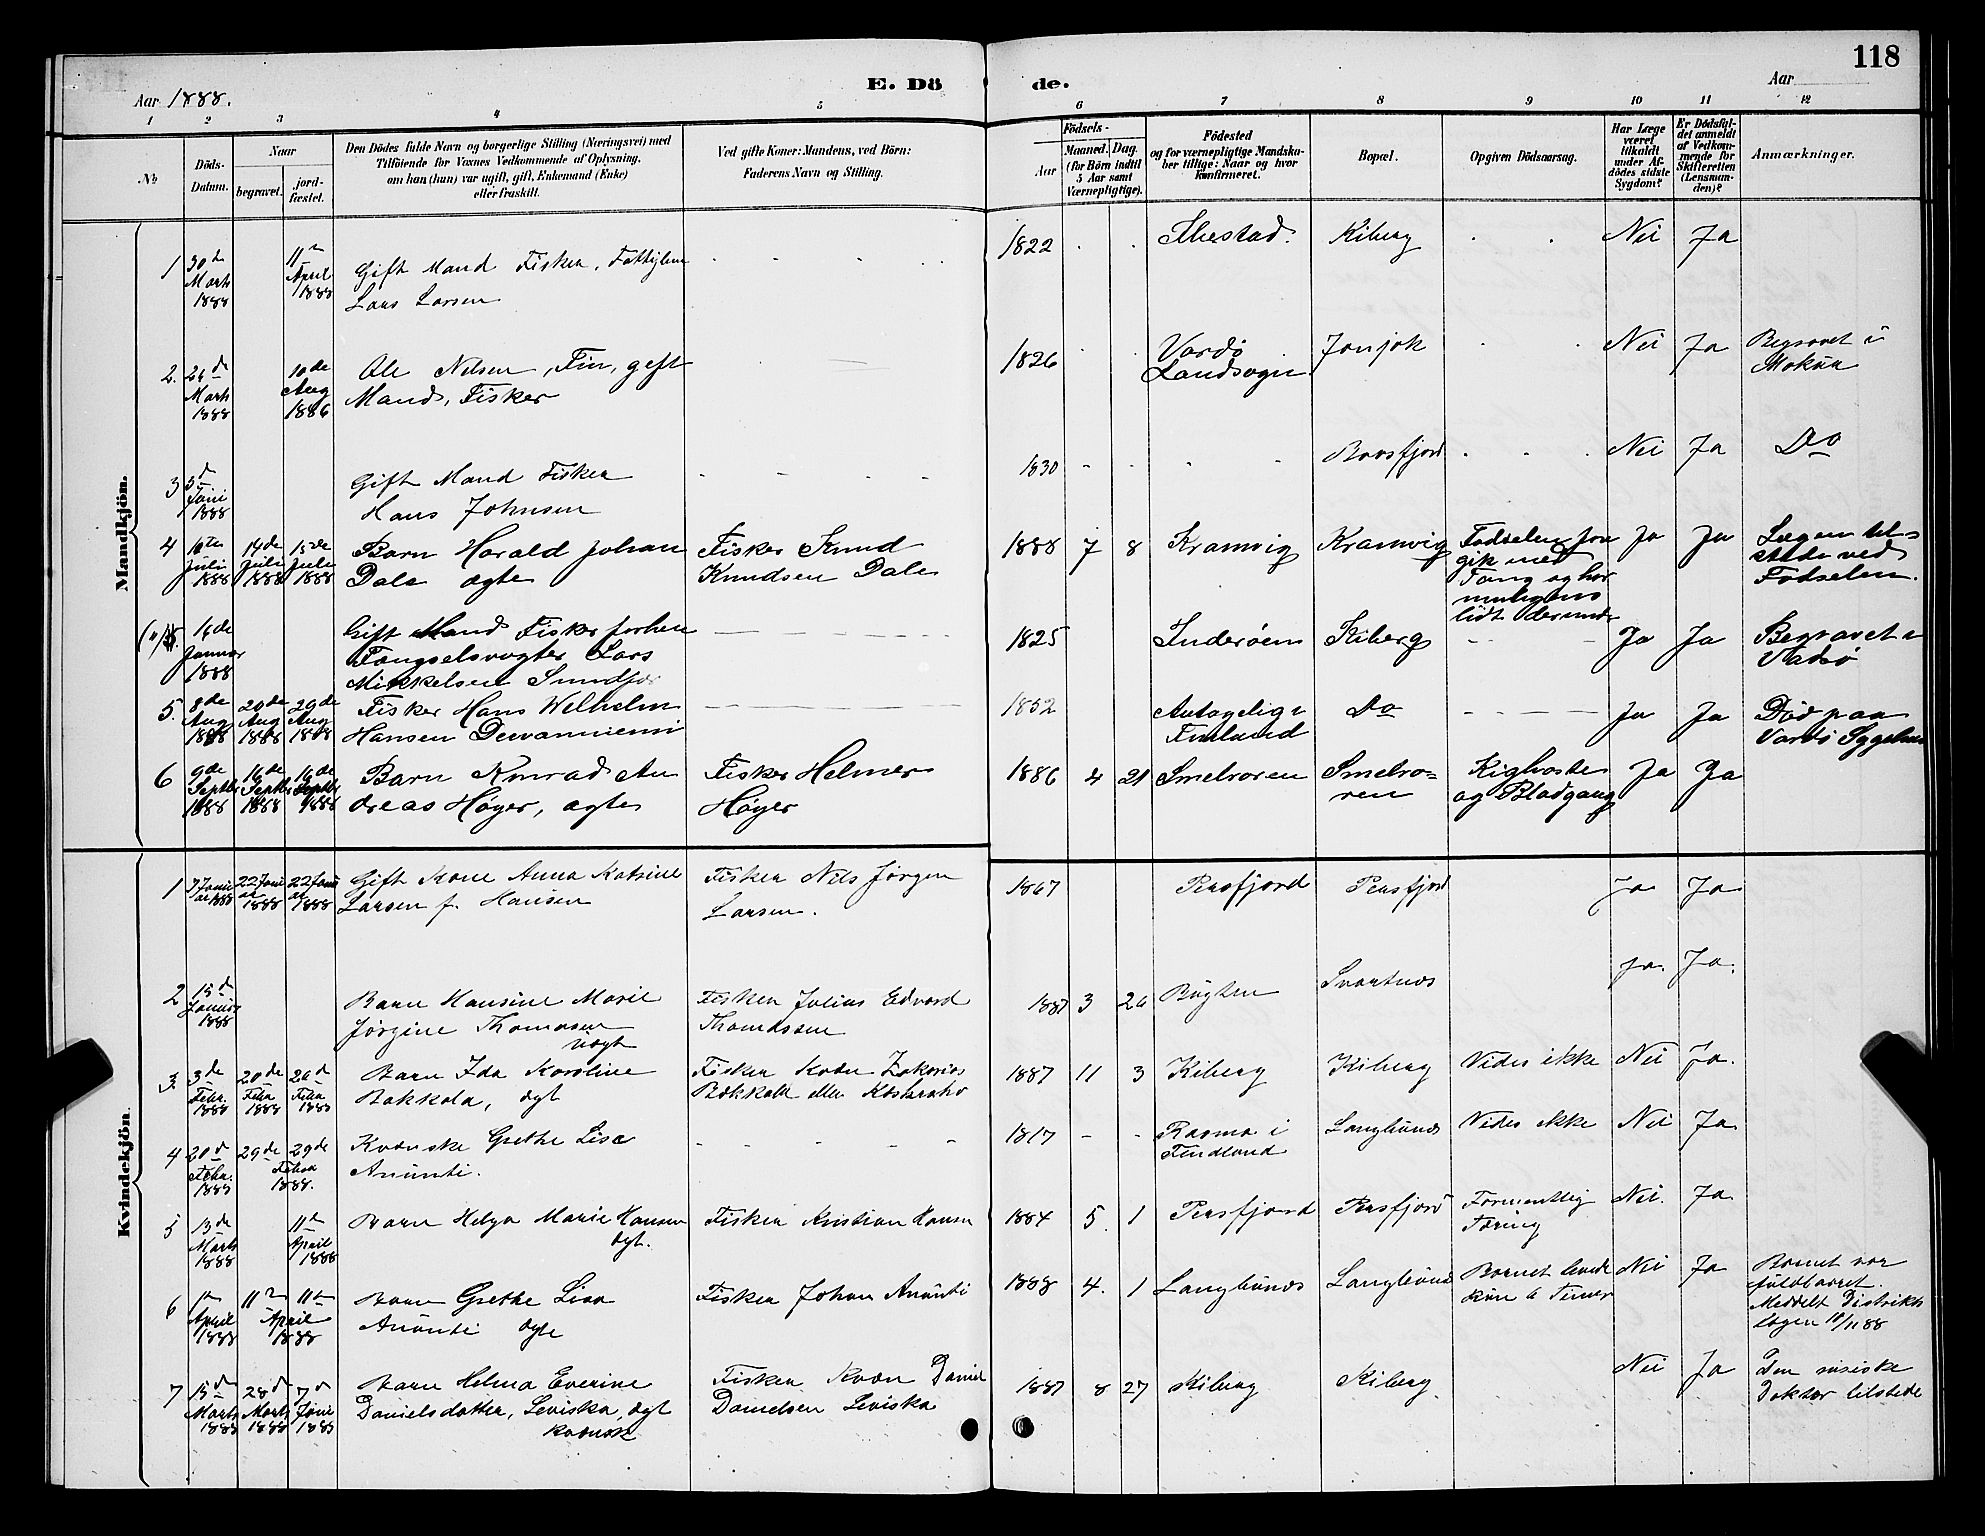 118
E. Dö de.
Aar 1888.
Aar
1 2 3 4 5 6 7 8 9 10 11 12
No
Döds-Datum.
Naar
begravet.
jord-fæstet.
Den Dödes fulde Navn og borgerlige Stilling (Næringsvei) med
Tilföiende for Voxnes Vedkommende af Oplysning,
om han (hun) var ugift, gift, Enkemand (Enke)
eller fraskilt.
Ved gifte Koner: Mandens, ved Börn:
Faderens Navn og Stilling.
Födsels-
Aar
Maaned. Dag.
(for Börn indtil
5 Aar samt
Værnepligtige).
Födested
og for værnepligtige Mandska-
ber tillige: Naar og hvor
konfirmeret.
Bopæl.
Opgiven Dödsaarsag.
Har Læge
været
tilkaldt
under Af-
dödes sidste
Sygdom?
Er Dödsfal-
det anmeldt
af Vedkom-
mende for
Skifteretten
(Lensman-
den)?
Anmærkninger.
Mandkjön.
1 30 Marts 1888 11 April 1888 Gift Mand Fisker,
Lars Larsen
1822 Kiberg Nei Ja
2. Marts 1888 10de Aug 1886 Ole Nilsen, Fin, gift
Mand, Fisker
1826 Vardö
Landsogn
Nei Ja Begravet i
3 5 Juni 1888 Gift Mand Fisker
Hans Johnsen
1830 Nei Ja Do
4 10 Juli 1888 14de Juli 1888 15de Juli 1888 Barn Harald Johan
Dale ægte
Fisker Knud
Knudsen Dale
1888 7 8 Kramvig Kramvig Fødselen
gik med
Tang og har
muligens
lidt derunder
Ja Ja Lægen til-
stede ved
Fødselen.
16de Januar 1888 Gift Mand Fisker forhen
Fængselsvogter Lars
Mikkelsen
1825 Inderöen Kiberg Ja Ja Begravet i
Vadsø
5. 8de Aug 1888 20de Aug 1888 29de Aug 1888 Fisker Hans Wilhelm
Hansen
1852 Antagelig i
Finland
Do Ja Ja Død paa
Vardö Sygehus
6 9de Septbr 1888 16de Septbr 1888 16de Septbr 1888 Barn Konrad An
dreas Høyer, ægte
Fisker Helmer
Høyer
1886 4 21 Smelroren Smelro-
ren
Kighoste
og Blodgang
Ja Ja
Kvindekjön.
1 Januar 1888 22 Januar 1888 22 Januar 1888 Gift Kone Anna Katrine
Larsen f. Hansen
Fisker Nils Jørgen
Larsen.
1867 Persfjord Persfjord Ja Ja
2 15 Januar 1888 Barn Hansine Marie
Jørgine Thomasen
uægt
Fisker Julius Edvard
Thomassen
1887 3 Bugten Svartnæs Ja. Ja.
3 3de Febr. 1888 20de Febr 1888 26 Febr 1888 Barn Ida Karoline
Bakkala, ægt
Fisker Kvæn Zakarias
Bakkala eller
1887 11 3 Kiberg Kiberg Vides ikke Nei Ja.
4 20 Febr. 1888 29de 29de Febr 1888. Kvænske Grethe Lisa
Anünti.
1817 i
Findland
Langbünæs Vides ikke Nei Ja
5 13de Marts 1888 11 April 1888 Barn Helga Marie Hansen
ægt.
Fisker Kristian Hansen
1884 5. 1 Persfjord Persfjord Formentlig
Tæring
Nei. Ja
6 1 April 1888 11 11 April 1888 Barn Grethe Lisa
Anünti ægte
Fisker Johan Anünti
1888 4. 1 Langbünæs Langbünæs Barnet levede
kun 6 Timer
Nei Ja Barnet var
fuldbaaret.
Meddelt Distrikts
lægen
7 15 Marts 1888 28 Marts 1888 7 Juni 1888 Barn Helma Everine
Danielsdatter, Leviska, ægt
kvænsk
Fisker Kvæn Daniel
Danielsen Leviska
1887 8 27 Kiberg Kiberg. Nei Ja Den russiske
Doktor tilstede